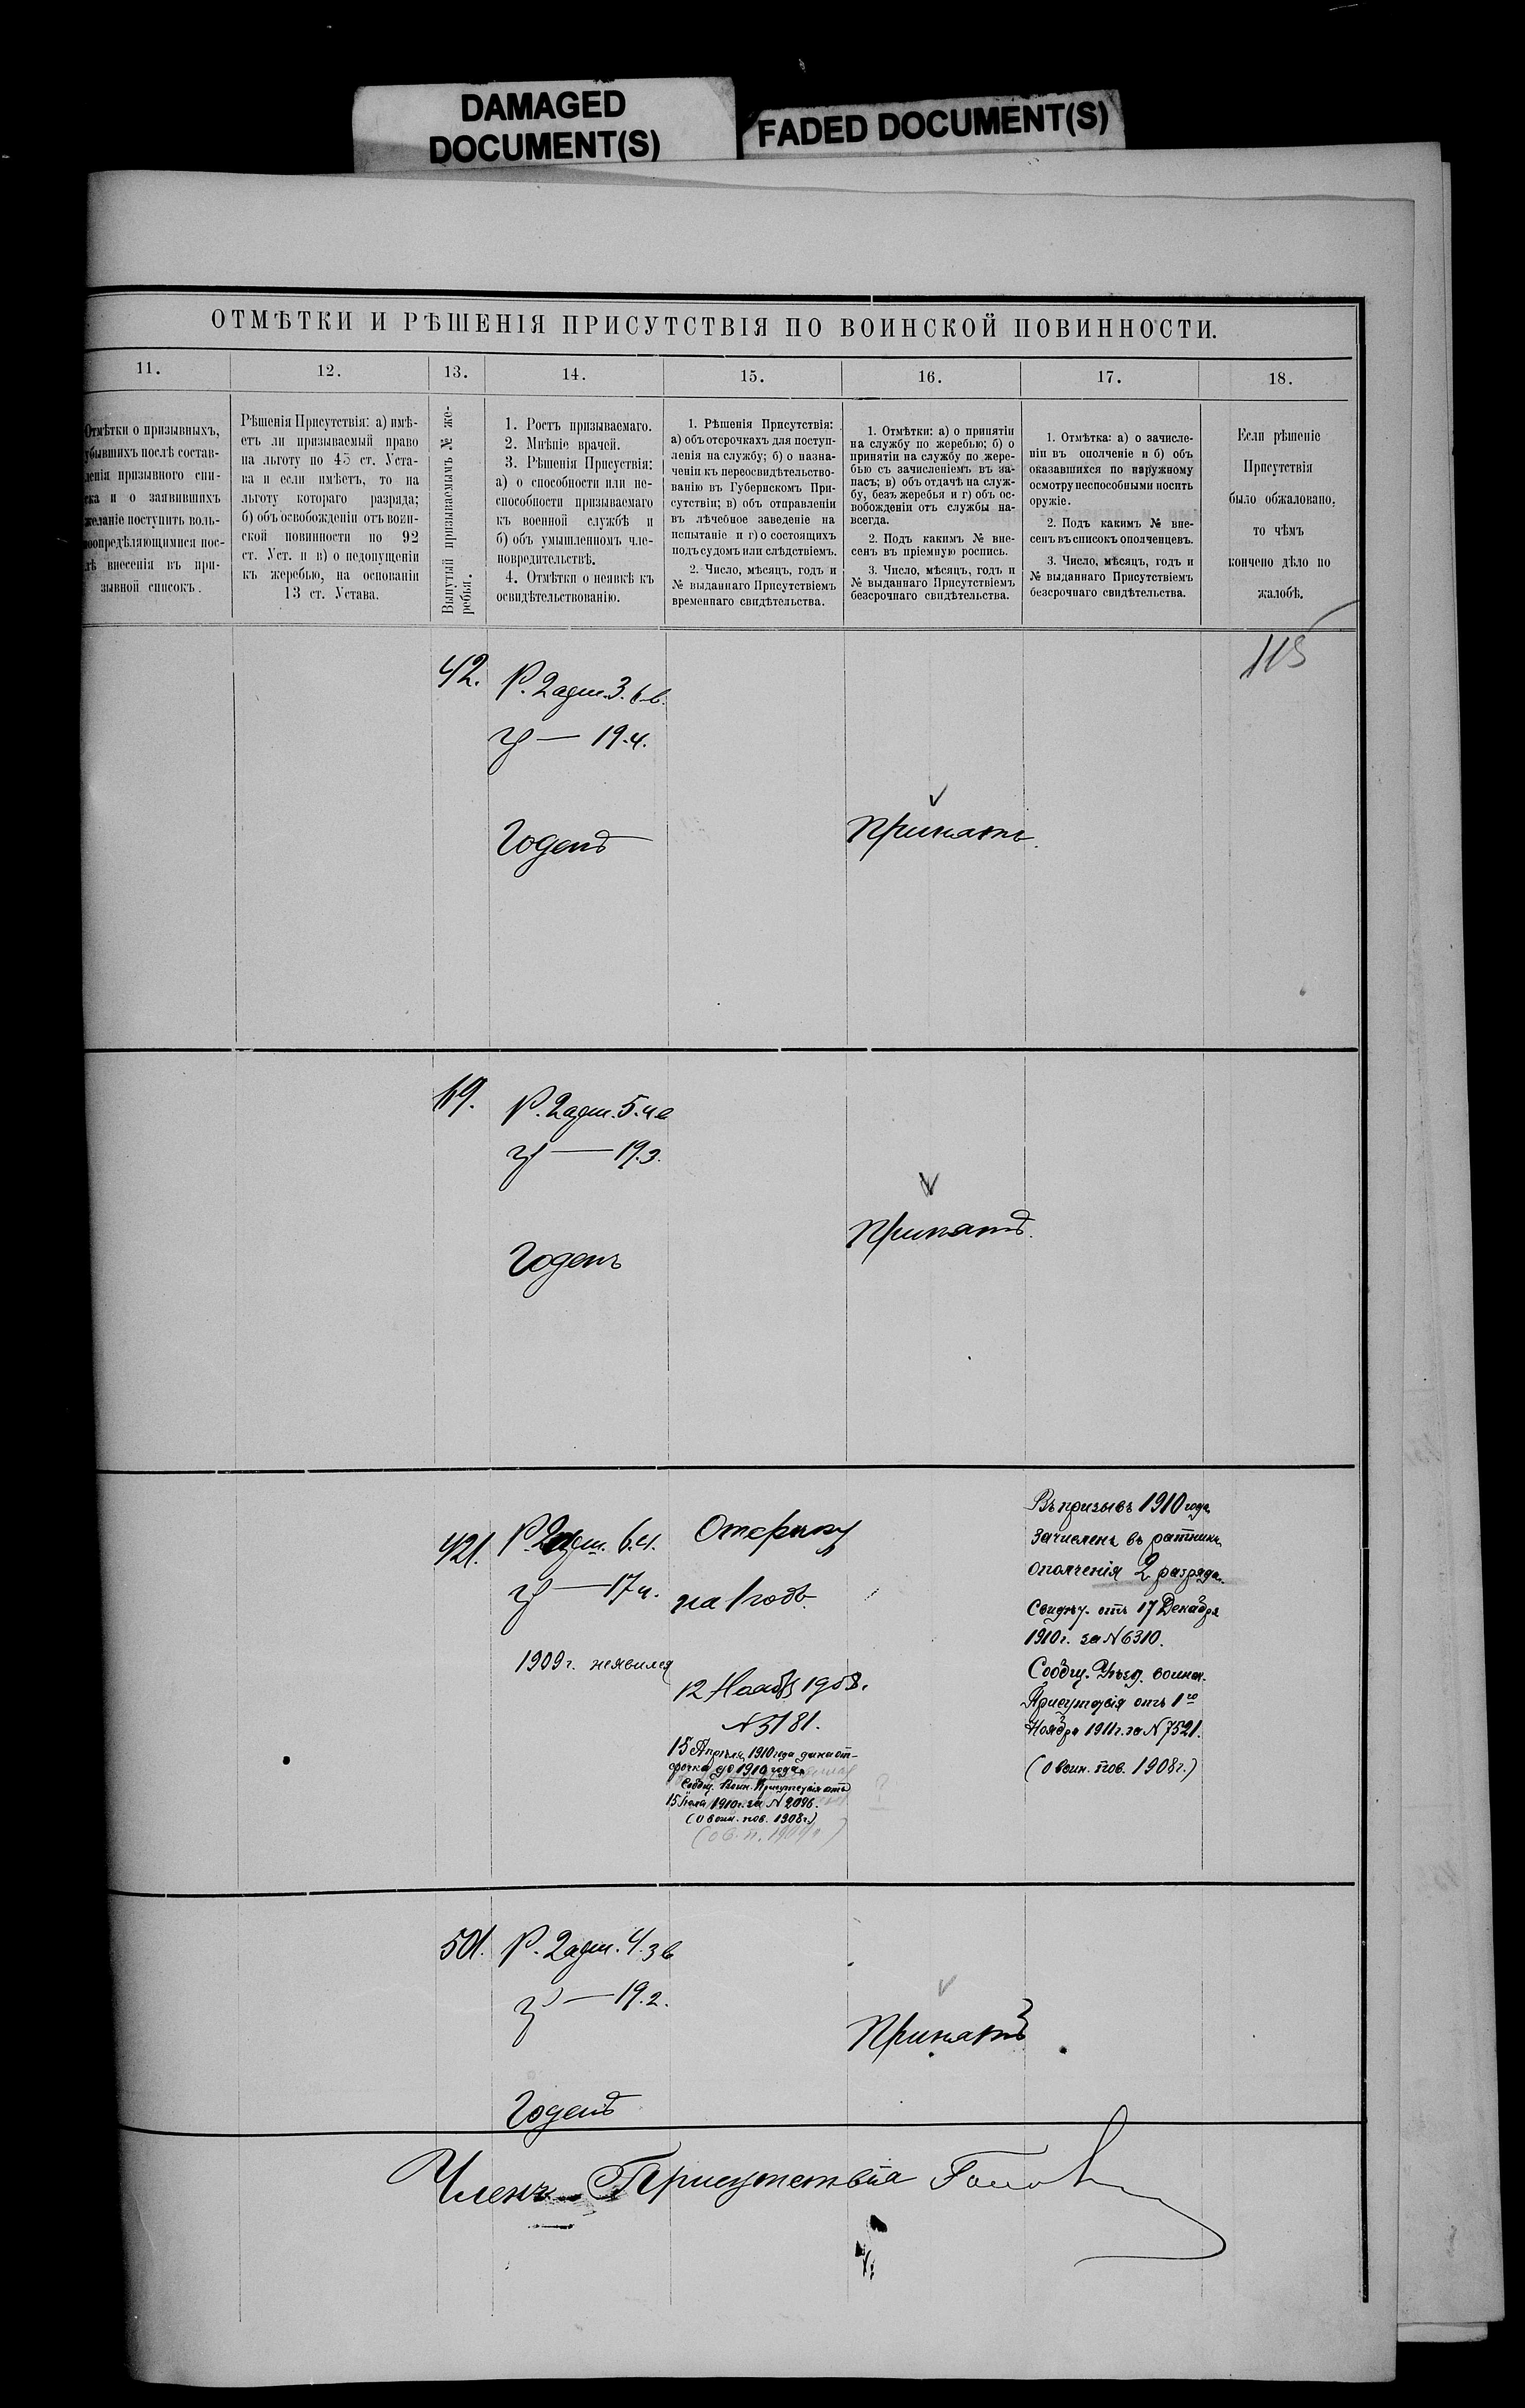 DAMAGED
DOCUMENT(S)
FADED DOCUMENT(S)
ОТМѢТКИ И РѢШЕНІЯ ПРИСУТСТВІЯ ПО ВОИНСКОЙ ПОВИННОСТИ.
11.
Отмѣтки о призывныхъ,
убывшихъ послѣ состав-
ленія призывного спи-
ска и о заявившихъ
желаніе поступить воль-
ноопредѣляющимися пос-
лѣ внесенія въ при-
зывной списокъ.
12.
Рѣшенія Присутствія: а) имѣ-
етъ ли призываемый право
на льготу по 45 ст. Уста-
ва и если имѣетъ, то на
льготу котораго разряда;
б) объ освобожденіи отъ воин-
ской повинности по 92
ст. Уст. и в) о недопущеніи
къ жеребью, на основаніи
13 ст. Устава.
13.
Вынутый призываемымъ № же-
ребья.
14.
1. Ростъ призываемаго.
2. Мнѣніе врачей.
3. Рѣшенія Присуствія:
а) о способности или не-
способности призываемаго
къ военной службѣ и
б) объ умышленномъ чле-
новредительствѣ.
4. Отмѣтки о неявкѣ къ
освидѣтельствованію.
15.
1. Рѣшенія Присутствія:
а) объ отсрочкахъ для поступ-
ленія на службу; б) о назна-
ченіи къ переосвидѣтельство-
ванію въ Губернскомъ При-
сутствіи; в) объ отправленіи
въ лѣчебное заведеніе на
испытаніе и г) о состоящихъ
подъ судомъ или слѣдствіемъ.
2. Число, мѣсяцъ, годъ и
№ выданнаго Присутствіемъ
временнаго свидѣтельства.
16.
1. Отмѣтки: а) о принятіи
на службу по жеребью; б) о
принятіи на службу по жере-
бью съ зачисленіемъ въ за-
пасъ; в) объ отдачѣ на служ-
бу, безъ жеребья и г) объ ос-
вобожденіи отъ службы на-
всегда.
2. Подъ какимъ № вне-
сенъ въ пріемную роспись.
3. Число, мѣсяцъ, годъ и
№ выданнаго Присутствіемъ
безсрочнаго свидѣтельства.
17.
1. Отмѣтка: а) о зачисле-
ніи въ ополченіе и б) объ
оказавшихся по наружному
осмотру неспособными носить
оружіе.
2. Подъ какимъ № вне-
сенъ въ списокъ ополченцевъ.
3. Число, мѣсяцъ, годъ и
№ выданнаго Присутствіемъ
безсрочнаго свидѣтельства.
18.
Если рѣшеніе
Присутствія
было обжаловано,
то чѣмъ
кончено дѣло по
жалобѣ.
115
42.
Р. 2 арш. 3. 6 в.
— 19.4.
Годенъ
Принятъ.
69.
Р. 2 арш. 5. 4 в
— 19.3.
Годенъ
Принятъ.
421.
Р. 2 арш. 6. 4.
— 17 ч.
1909 г. неявился
Отсрочку
на 1 годъ.
12 Ноября 1908.
N 5181.
15 Апрѣля 1910 года дана от-
срочка до 1910 года
Сообщ. Воин. Присутствія отъ
15 Мая 1910 г. за N 2096.
(О воин. пов. 1908 г.)
Въ призывъ 1910 года
зачисленъ въ ратники
ополченія 2 разряда.
Свидѣт. отъ 17 Декабря
1910 г. за N 6310.
Сообщ. Уѣзд. воинск.
Присутствія отъ 1го
Ноября 1911 г. за N 7521.
(О воин. пов. 1908 г.)
501.
Р. 2 арш. 4. 3 в
— 19.2.
Годенъ
Принятъ
Членъ Присутствія